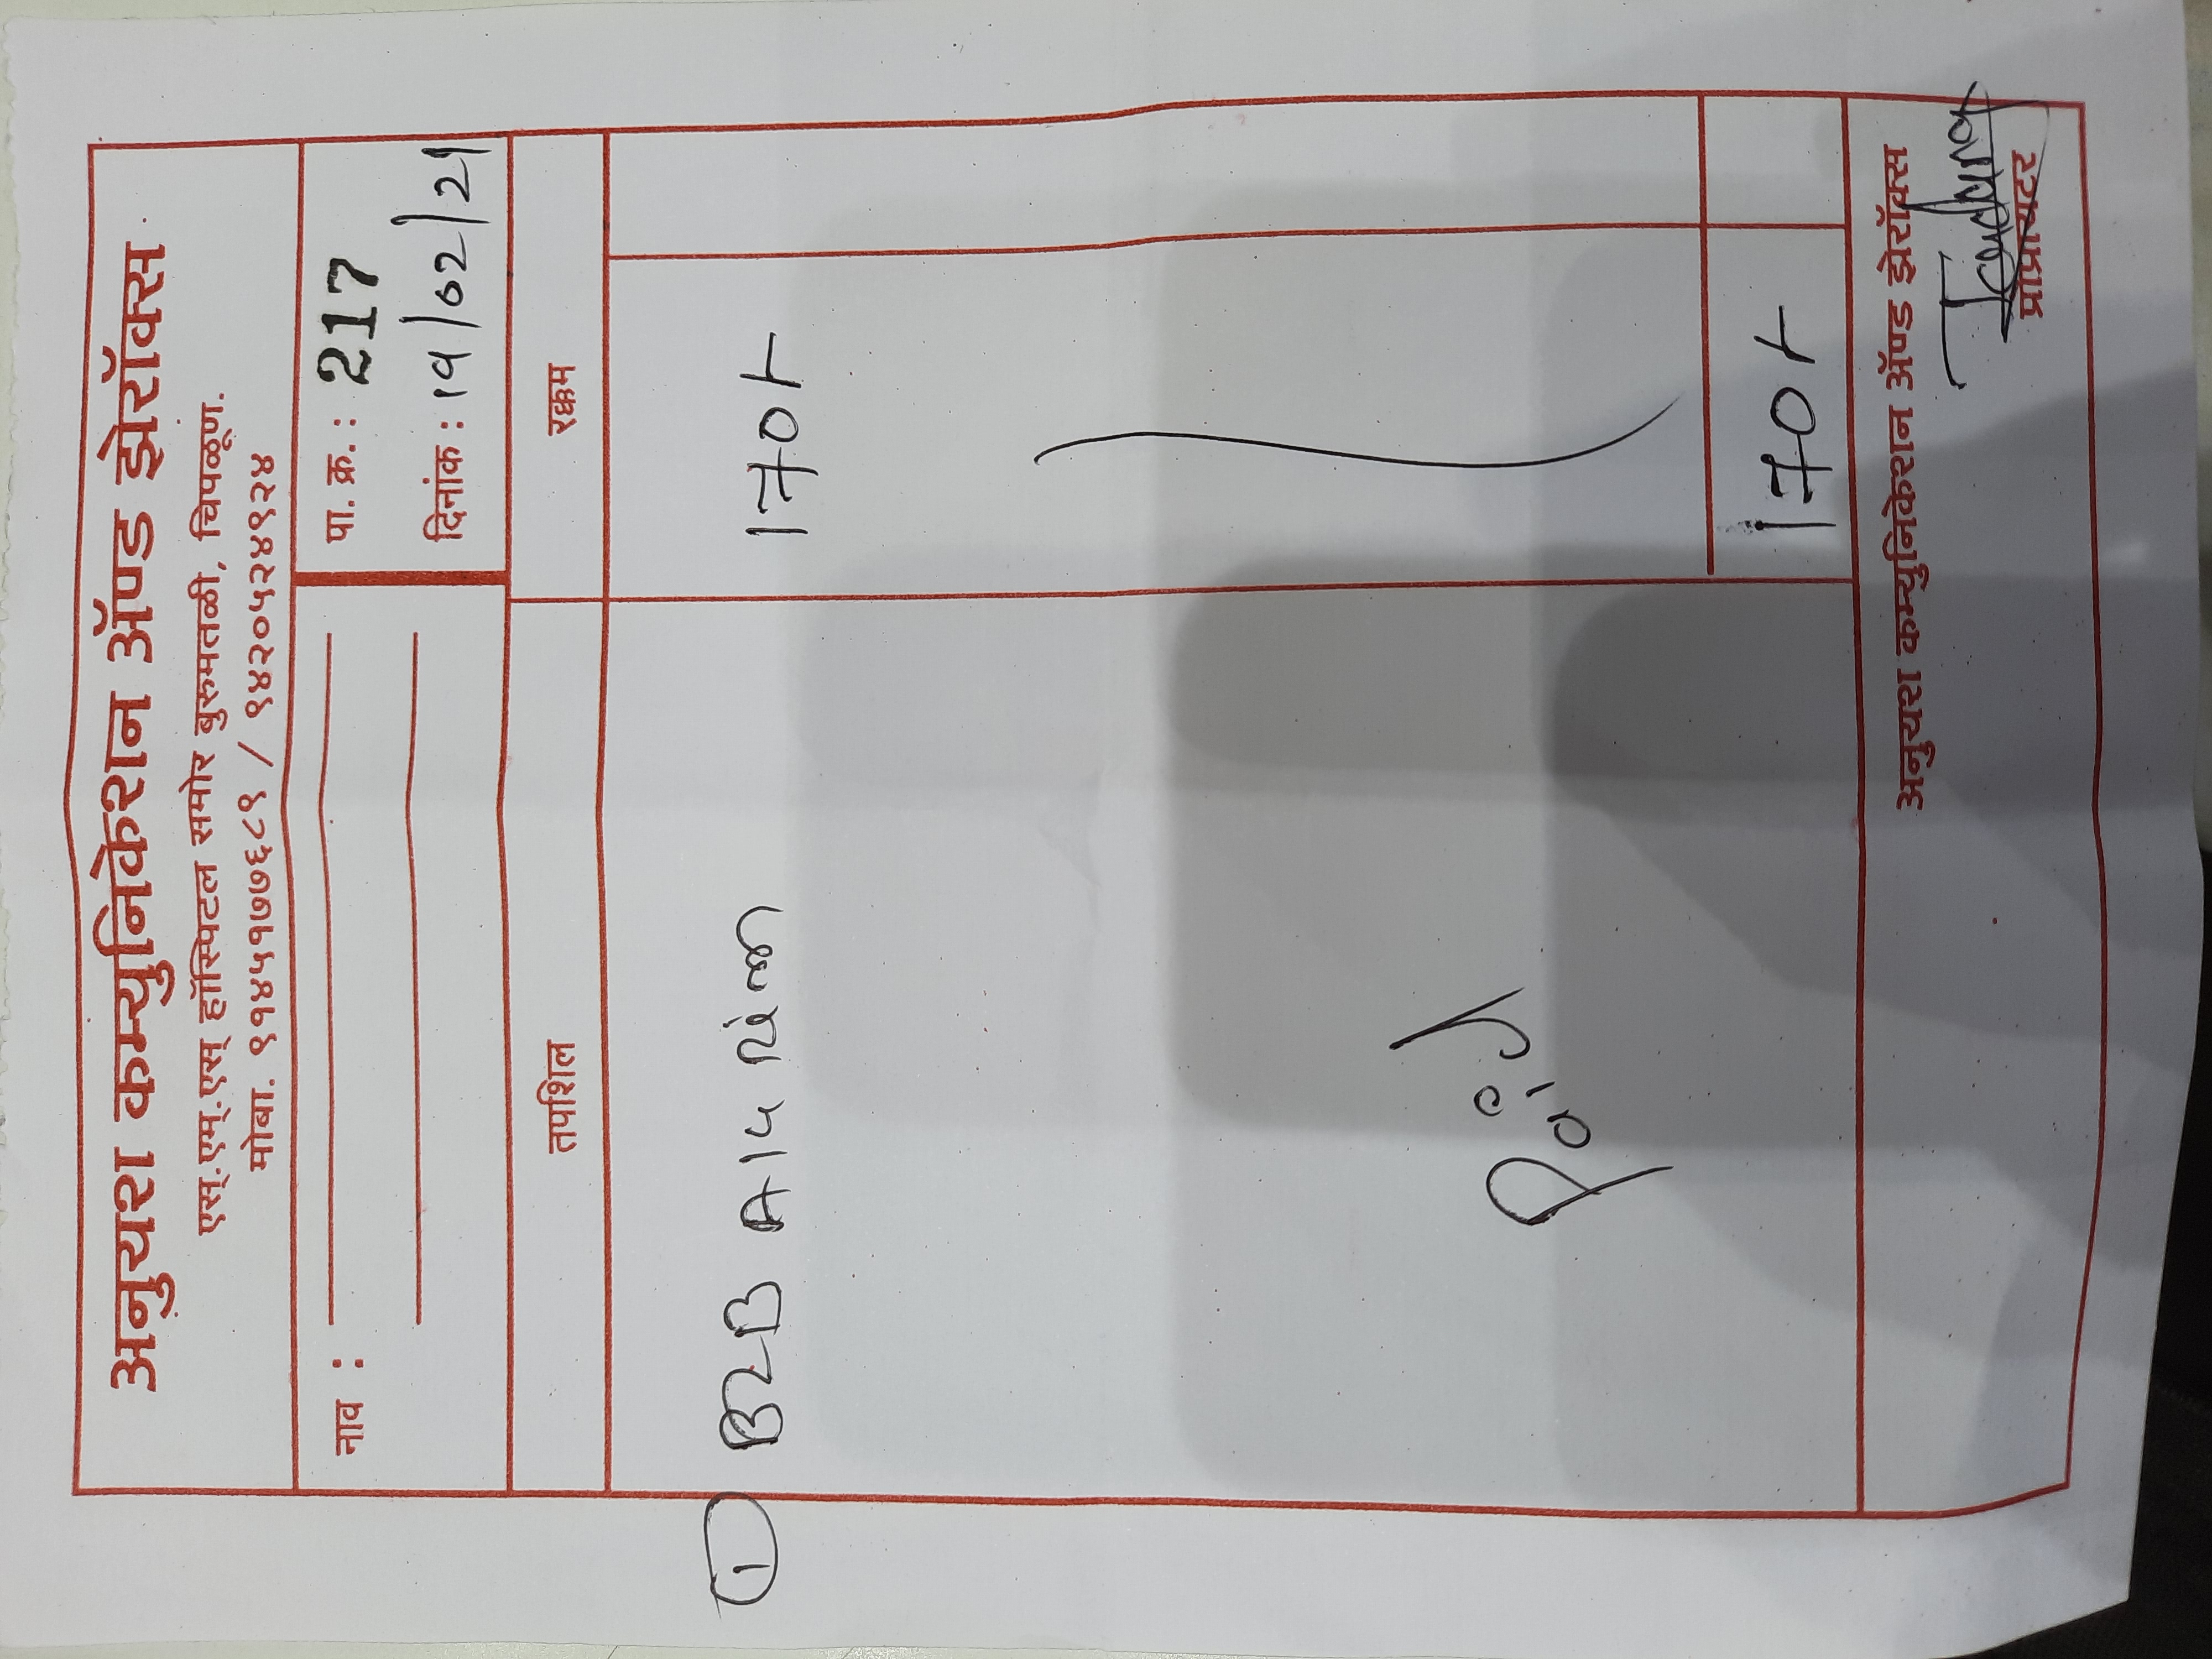 अनुयश कम्युनिकेशन ॲण्ड झेरॉक्स
एस्.एम्.एस् हॉस्पिटल समोर बुरुमतळी, चिपळूण.
मोबा. ९१४५१७७६८९ / ९४२०५२४९२४
नाव :
पा. क्र. : 217
दिनांक : 19/02/21
तपशिल रक्कम
1 B2B A14 170/-
Paid
170/-
अनुयश कम्युनिकेशन ॲण्ड झेरॉक्स
प्रोप्रायटर